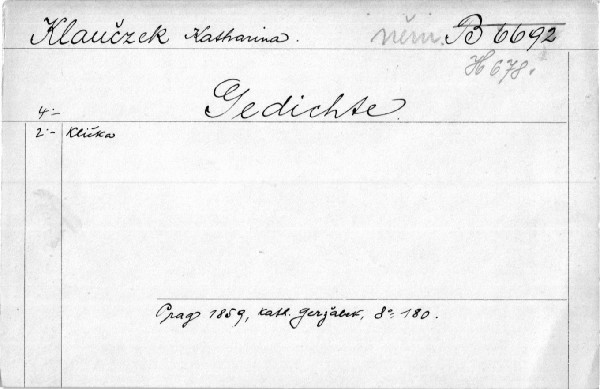 Klaučzek Katharina. něm. B 6692
H 678.
4·- Gedichte.
2·- Klička
Prag 1859, Kath. Geržabek, 8º 180.